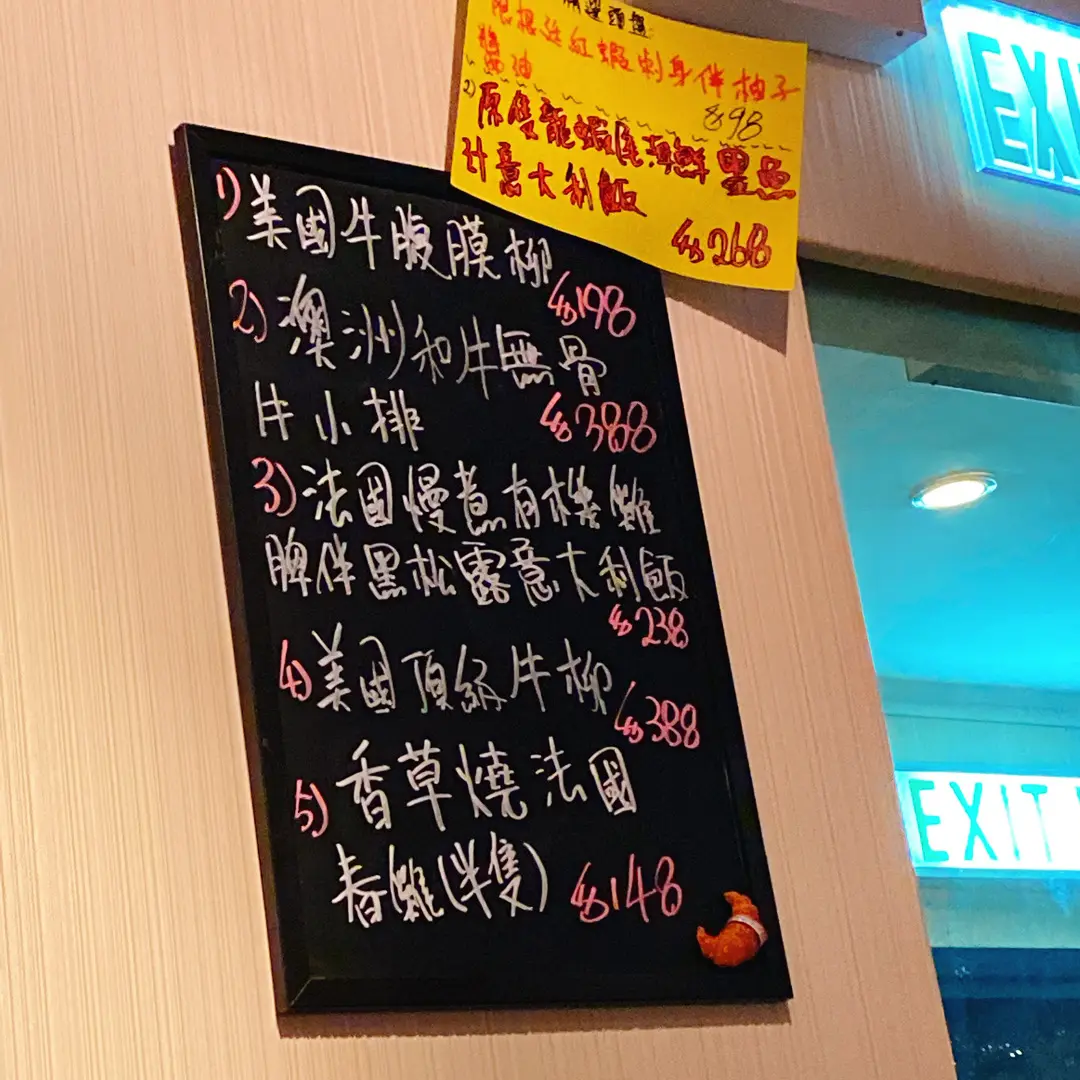 精選頭盤
阿根廷紅蝦刺身伴柚子
醬油
$98
2) 原隻龍蝦尾海鮮墨魚
汁意大利飯
$268
1) 美國牛腹膜柳
$198
2) 澳洲和牛無骨
牛小排 $388
3) 法國慢煮有機雞
髀伴黑松露意大利飯
$238
4) 美國頂級牛柳
$388
5) 香草燒法國
春雞(半隻) $148
EXI
EXIT